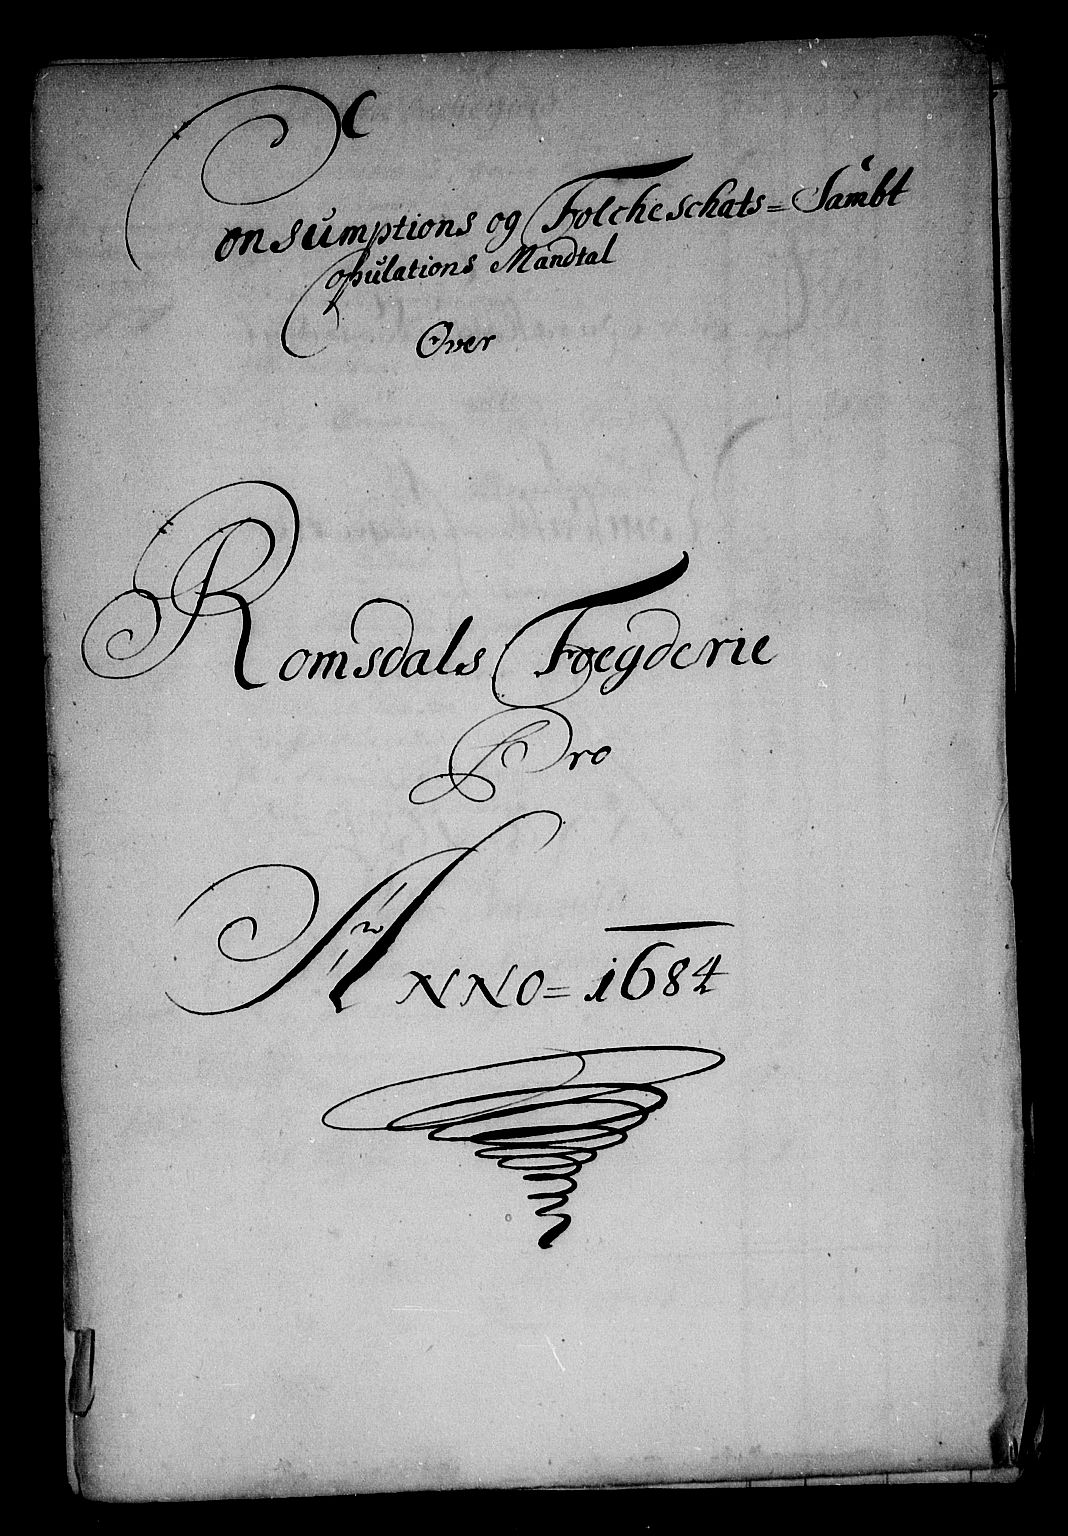 Consumptions og Folcheschats= Sambt
Copulations Mandtal
Over
Romsdals Foegderie
Pro
ANNO= 1684